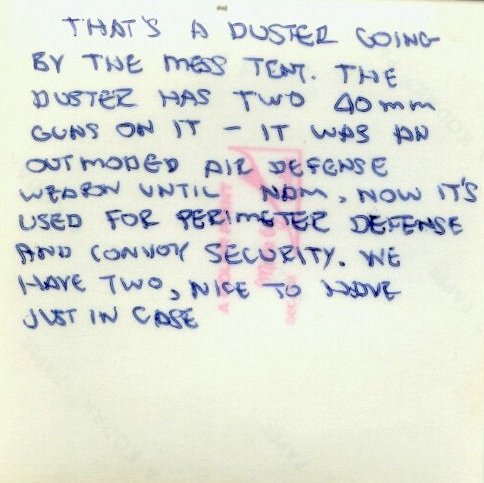 THAT'S A DUSTER GOING
BY THE MESS TENT. THE
DUSTER HAS TWO 40mm
GUNS ON IT - IT WAS AN
OUTMODED AIR DEFENSE
WEAPON UNTIL NAM, NOW IT'S
USED FOR PERIMETER DEFENSE
AND CONVOY SECURITY. WE
HAVE TWO, NICE TO HAVE
JUST IN CASE